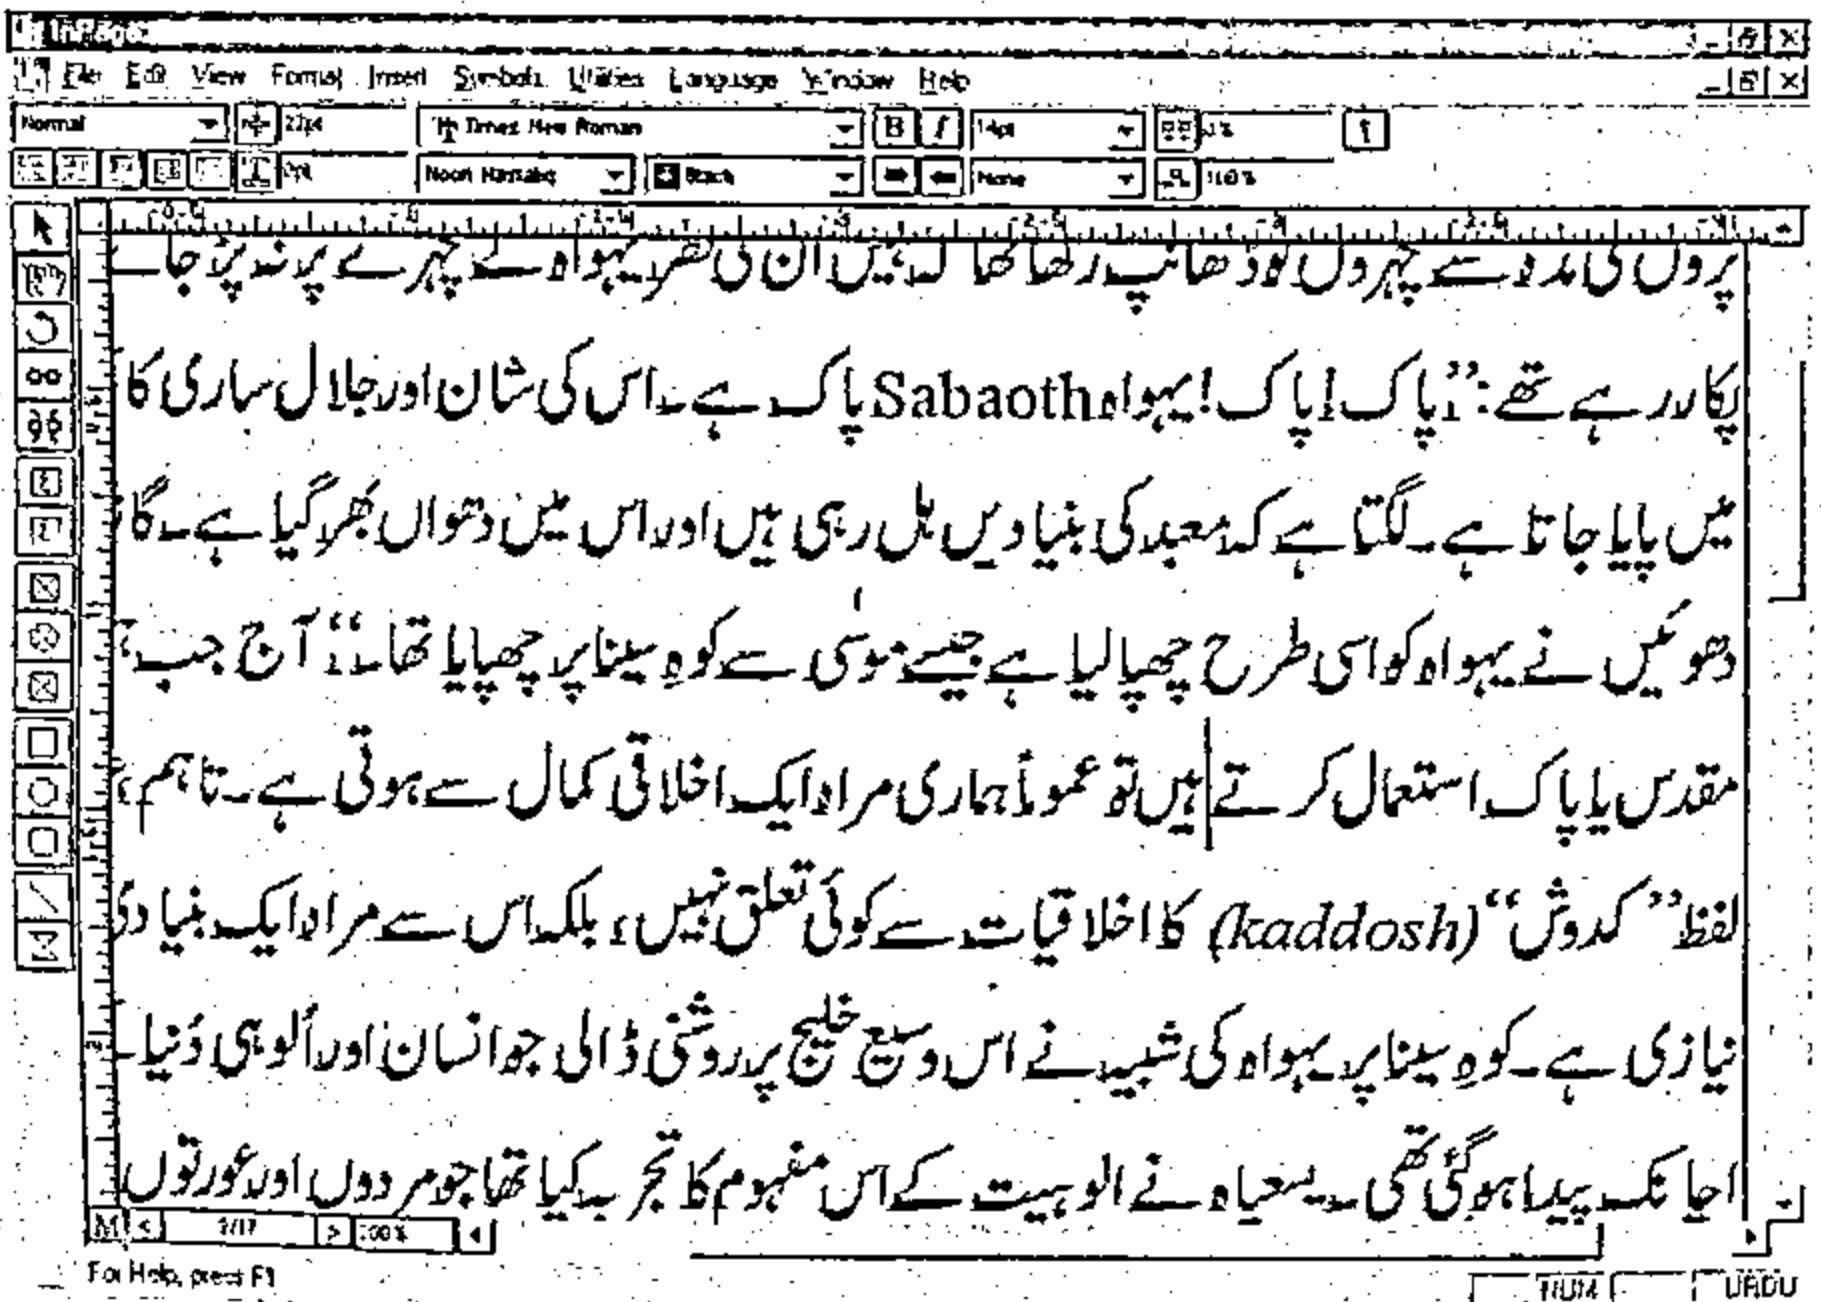 InPage
File Edit View Format Insert Symbols Utilities Language Window Help
Normal 22pt Times New Roman B I 14pt
0pt Noori Nastaliq Black None
پروں کی مدد سے چہروں کو ڈھانپ رکھا تھا کہ کہیں ان کی نظر یہواہ کے چہرے پر نہ پڑ جائے
پکار رہے تھے: ”پاک! پاک! یہواہ Sabaoth پاک ہے۔ اس کی شان اور جلال ساری کا
میں پایا جاتا ہے۔ لگتا ہے کہ معبد کی بنیادیں ہل رہی ہیں اور اس میں دھواں بھر گیا ہے۔ گا
دھوئیں نے یہواہ کو اسی طرح چھپا لیا ہے جیسے موسٰی سے کوہِ سینا پر چھپایا تھا۔“ آج جب
مقدس یا پاک استعمال کرتے ہیں تو عموماً ہماری مراد ایک اخلاقی کمال سے ہوتی ہے۔ تاہم
لفظ ”کدوش“ (kaddosh) کا اخلاقیات سے کوئی تعلق نہیں، بلکہ اس سے مراد ایک بنیادی
نیازی ہے۔ کوہِ سینا پر یہواہ کی شبیہ نے اس وسیع خلیج پر روشنی ڈالی جو انسان اور اُلوہی دُنیا
اچانک پیدا ہو گئی تھی۔ یسعیاہ نے الوہیت کے اس مفہوم کا تجربہ کیا تھا جو مردوں اور عورتوں
M < 1/17 > 200%
For Help, press F1 NUM URDU